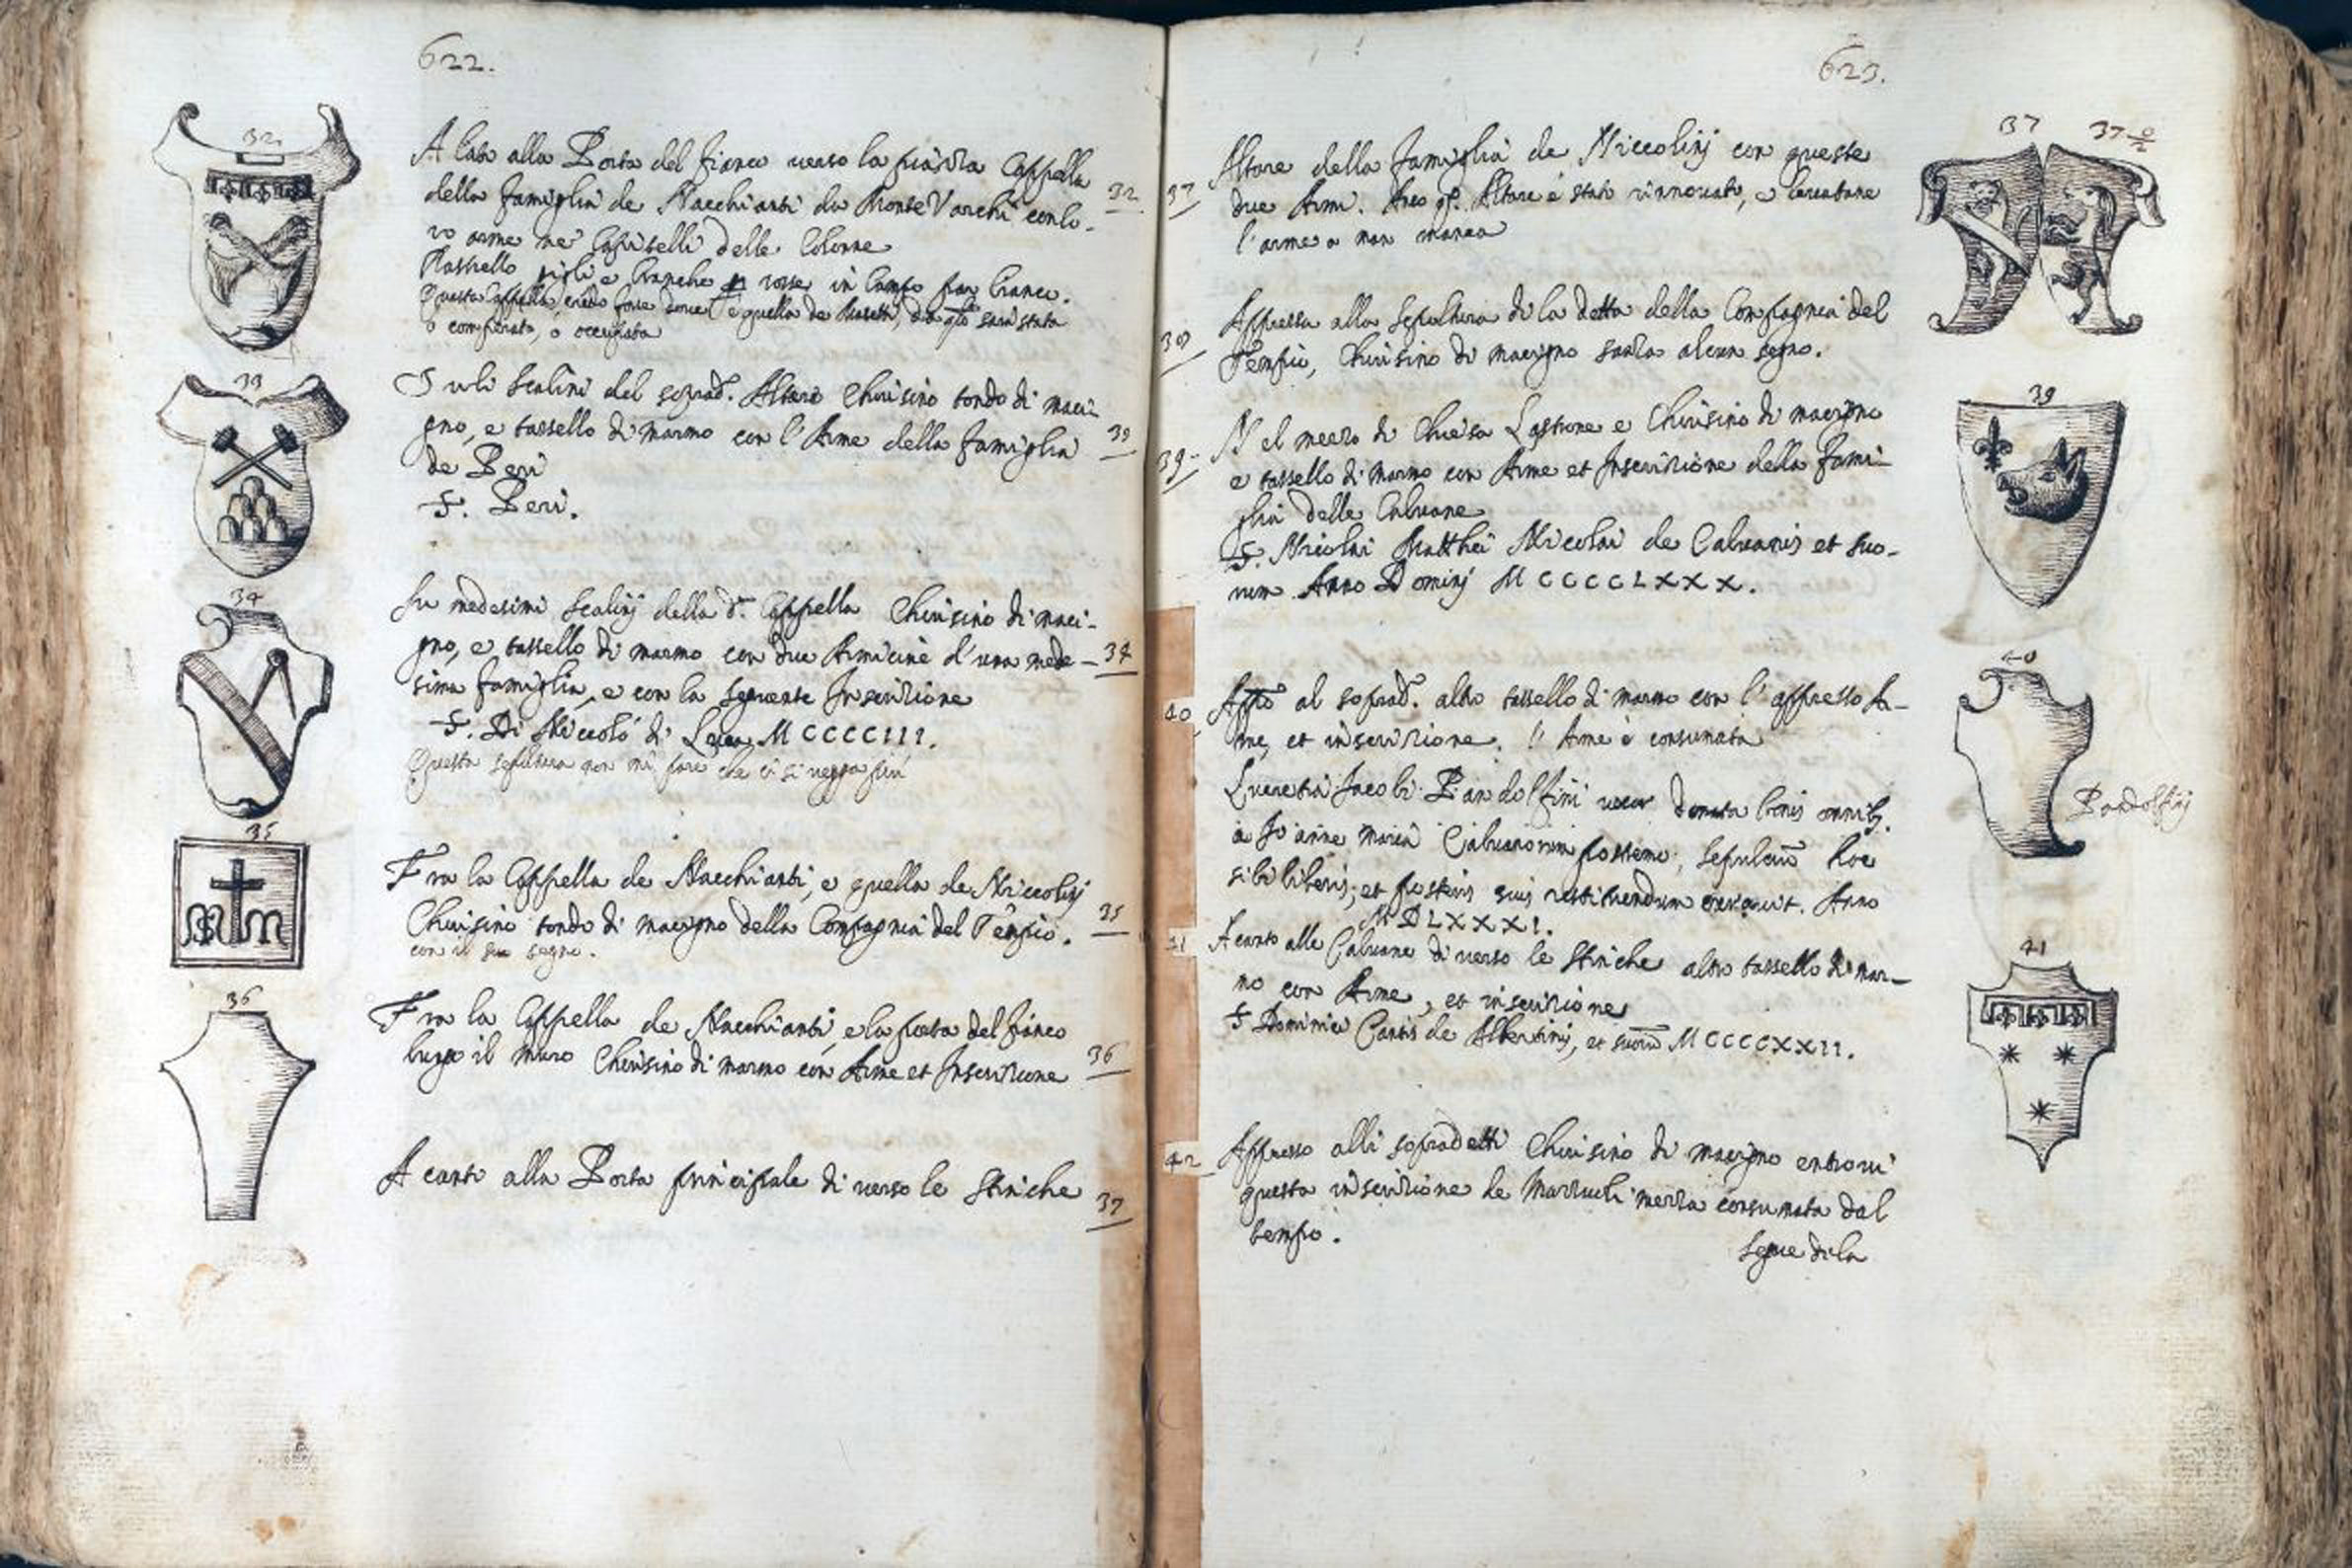 622.
32.
A lato alla Porta del fianco verso la piazza Cappella
della famiglia de Nacchianti da Monte Varchi con lo-
ro arme ne' Capitelli delle Colonne
32
Rastrello gigli e branche rosse in campo bianco.
Questa Cappella, credo forse dove è quella de
o comprata, o occupata
33
Su li scalini del soprad.º Altare Chiusino tondo di maci-
gno, e tassello di marmo con l'Arme della famiglia
de Peri
S. Peri.
33
34
Su medesimi scalinj della d.ª Cappella Chiusino di maci-
gno, e tassello di marmo con due Armicine d'una mede-
sima famiglia, e con la seguente Inscrizione
S. Di Niccolò di Luca MCCCCIII.
Questa sepultura non mi pare che ci si vegga più
34
35
Fra la Cappella de Nacchianti, e quella de Niccolinj
Chiusino tondo di macigno della Compagnia del Tempio.
con il suo segno.
35
M M
36
Fra la Cappella de Nacchianti, e la porta del fianco
lungo il muro Chiusino di marmo con Arme et Inscrizione
36
A canto alla Porta principale di verso le Stinche
37
623.
37
37 2/2
37
Altare della famiglia de Niccolinj con queste
due Armi. Altare è stato rinnovato, e levatone
l'arme a man manca
38
Appresso alla sepoltura di la detta della Compagnia del
Tempio, Chiusino di macigno sanza alcun segno.
39
39
Nel mezzo di Chiesa Lastrone e Chiusino di macigno
e tassello di marmo con Arme et Inscrizione della fami-
glia delle Calvane
S. Nicolai Matthei Nicolai de Calvanis et suo-
rum Anno Dominj MCCCCLXXX.
40
40
App.º al soprad.º altro tassello di marmo con l'appresso Ar-
me, et inscrizione. l'Arme è consumata
Lucretia Jacobi Pandolfini uxor donata bonis omnib.
a Joanne Maria Calvanorum postremo, sepulcrũ hoc
sibi liberis, et posteris suis restituendum curavit. Anno
MDLXXXI.
Pandolfinj
41
41
A canto alle Calvane di verso le Stinche altro tassello di mar-
mo con Arme, et inscrizione
S. Dominici Cantis de Albertinis, et suorũ MCCCCXXII.
42
Appresso alli sopradetti Chiusino di macigno entrovi
questa inscrizione de Marzuoli mezza consumata dal
tempo.
Segue di la